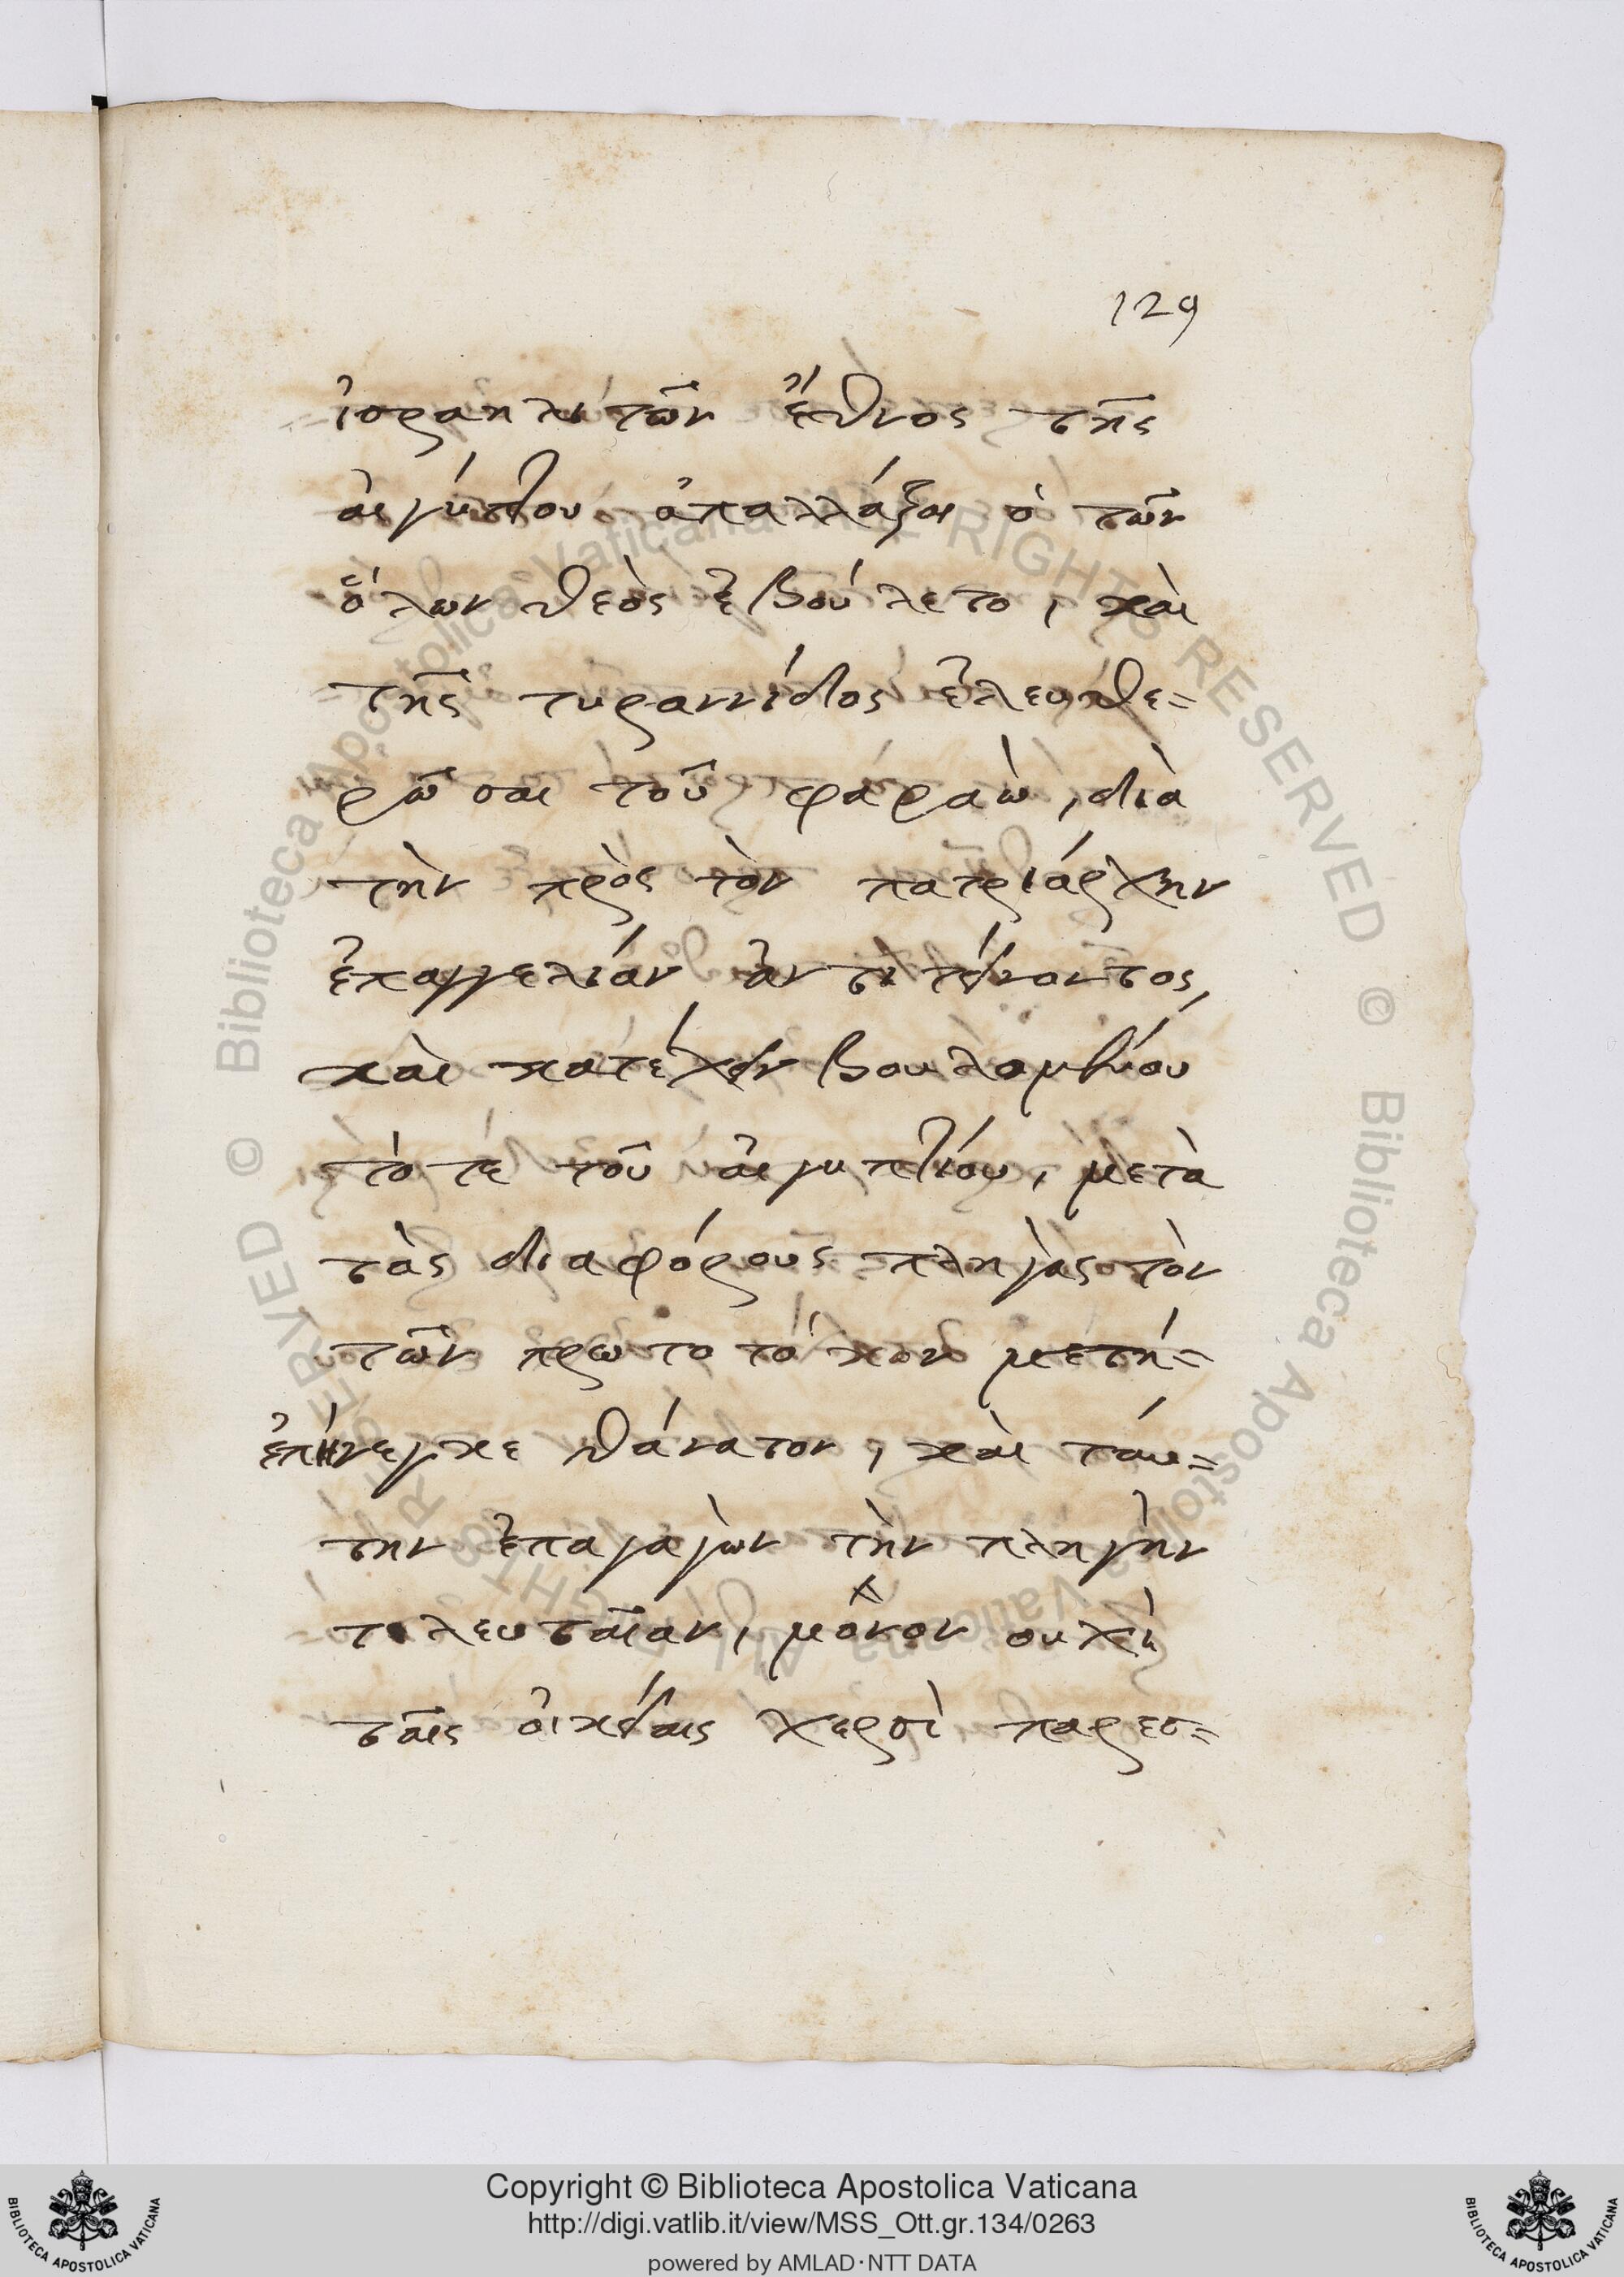 129
ἰσραηλιτῶν ἔθνος τῆς
ἀιγύπτου ἀπαλλάξαι ὁ τῶν
ὅλων θεὸς ἐβούλετο, καὶ
τῆς τυραννίδος ἐλευθε=
ρῶσαι τοῦ φάραὼ, διὰ
τὴν πρὸς τὸν πατριάρχην
ἐπαγγελίαν ἀντιτείνοντος,
καὶ κατέχειν βουλομένου
τότε τοῦ ἀιγυπτίου, μετὰ
τὰς διαφόρους πληγὰς τὸν
τῶν πρωτοτόκων
ἐπήνεγκε θάνατον, καὶ ταύ=
την ἐπαγαγὼν τὴν πληγὴν
τελευταῖαν, μόνον ουχὶ
ταῖς οἰκείαις χερσὶ παρεσ=
© Biblioteca Apostolica Vaticana ALL RIGHTS RESERVED © Biblioteca Apostolica Vaticana ALL RIGHTS RESERVED
Copyright © Biblioteca Apostolica Vaticana
http://digi.vatlib.it/view/MSS_Ott.gr.134/0263
powered by AMLAD·NTT DATA
BIBLIOTECA APOSTOLICA VATICANA
BIBLIOTECA APOSTOLICA VATICANA